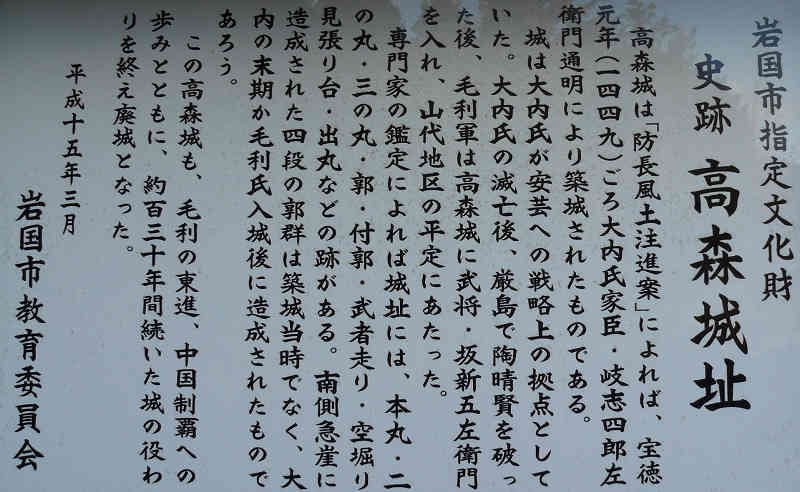 岩国市指定文化財
史跡 高森城址
高森城は「防長風土注進案」によれば、宝徳
元年(一四四九)ごろ大内氏家臣・岐志四郎左
衛門通明により築城されたものである。
城は大内氏が安芸への戦略上の拠点として
いた。大内氏の滅亡後、厳島で陶晴賢を破っ
た後、毛利軍は高森城に武将・坂新五左衛門
を入れ、山代地区の平定にあたった。
専門家の鑑定によれば城址には、本丸・二
の丸・三の丸・郭・付郭・武者走り・空堀り
見張り台・出丸などの跡がある。南側急崖に
造成された四段の郭群は築城当時でなく、大
内の末期か毛利氏入城後に造成されたもので
あろう。
この高森城も、毛利の東進、中国制覇への
歩みとともに、約百三十年間続いた城の役わ
りを終え廃城となった。
平成十五年三月
岩国市教育委員会